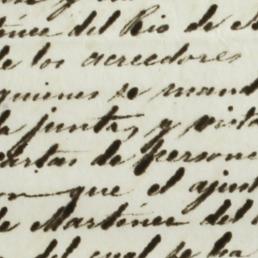 tinez del Rio de
de los acreedores
quienes se mand
la junta, y vista
cartas de persona
con que el ajust
de Martinez del
del cual se ha